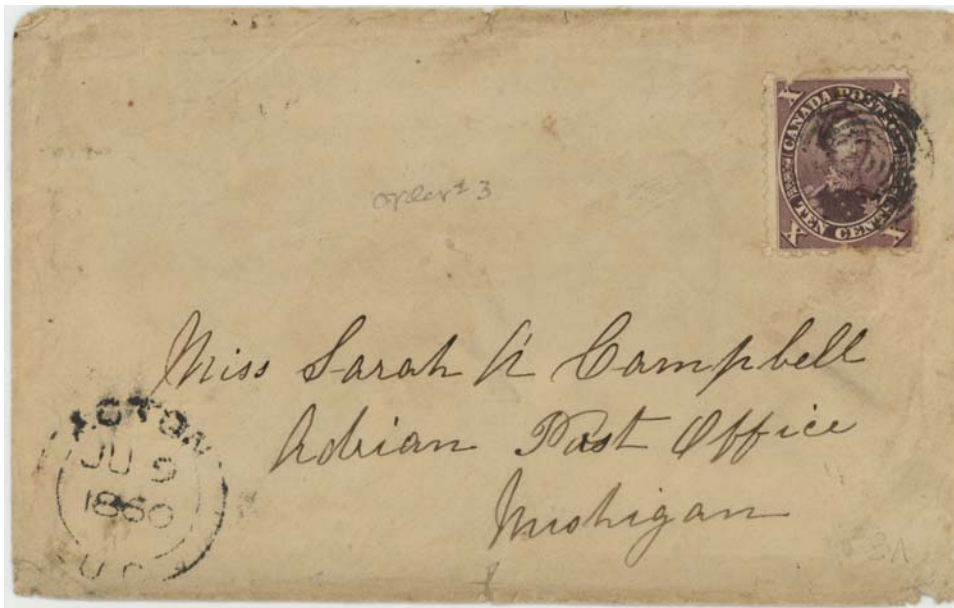 CANADA POSTAGE
TEN CENTS
X X X X
order # 3
Miss Sarah A Campbell
Adrian Post Office
Michigan
ACTON
JU 9
1860
U.C.
3A